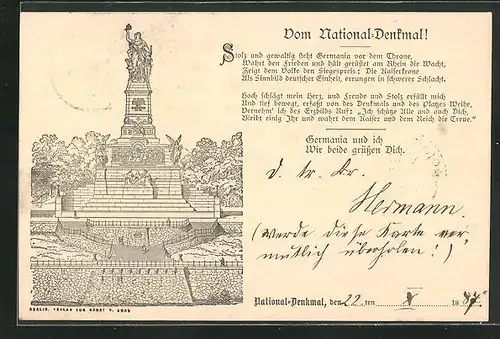 Vom National-Denkmal!
Stolz und gewaltig steht Germania vor dem Throne,
Wahrt den Frieden und hält gerüstet am Rhein die Wacht,
Zeigt dem Volke den Siegespreis: Die Kaiserkrone
Als Sinnbild deutscher Einheit, errungen in schwerer Schlacht.
Hoch schlägt mein Herz, und Freude und Stolz erfüllt mich
Und tief bewegt, erfaßt von des Denkmals und des Platzes Weihe,
Vernehm' ich des Erzbilds Ruf: „Ich schütze Alle und auch Dich;
Bleibt einig Ihr und wahrt dem Kaiser und dem Reich die Treue."
Germania und ich
Wir beide grüßen Dich.
d. tr. Br.
Hermann.
(Werde diese Karte ver-
mutlich überholen!)
National-Denkmal, den 22. ten X 18 97.
BERLIN, VERLAG VON ERNST V.